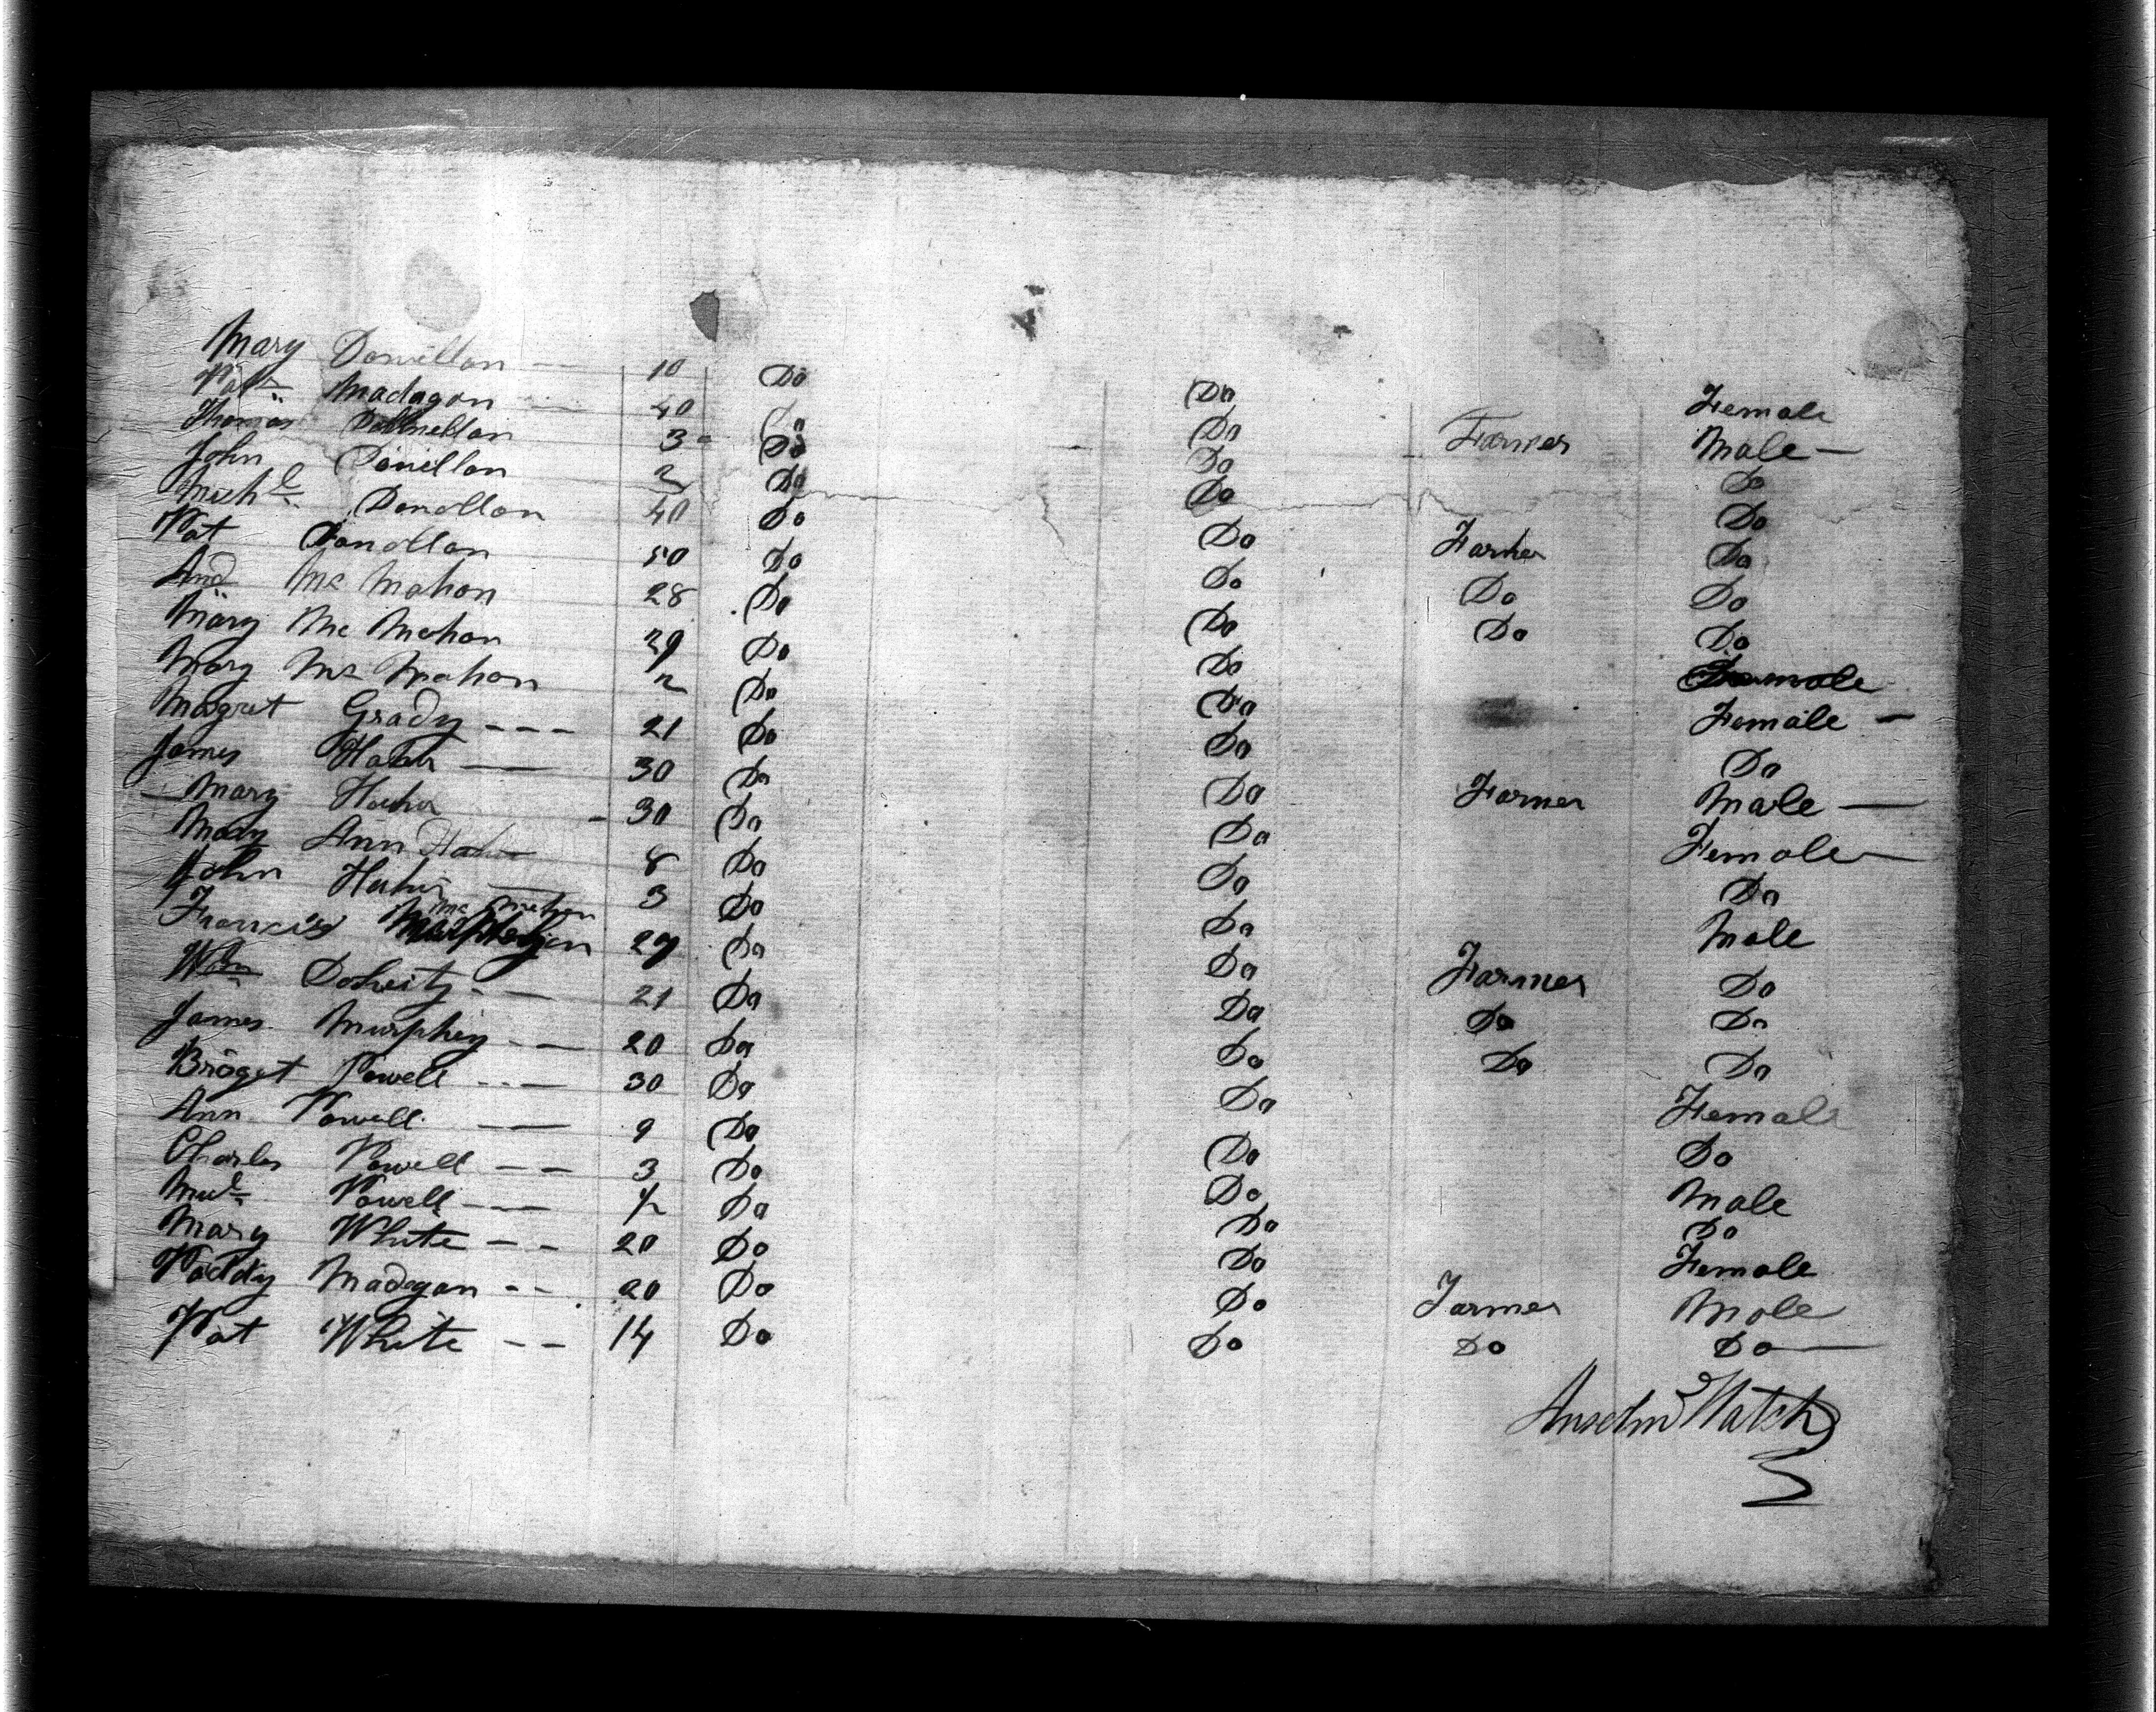 Mary Donillon — 10 Do Do Female
Patk Madagan 40 Do Do Farmer Male —
Thomas Donnellan 3 Do Do Do
John Donillan 2 Do Do Do
Michl Donollan 40 Do Do Farmer Do
Pat Donollan 50 Do Do Do Do
And Mc Mahon 28 Do Do Do Do
Mary Mc Mahon 29 Do Do Female
Mary Mc Mahon 2 Do Do Female —
Magret Grady --- 21 Do Do Do
James — 30 Do Do Farmer Male —
Mary 30 Do Do Female —
Mary Ann 8 Do Do Do
John — 3 Do Do Male
Francis Mc Mahon 29 Do Do Farmer Do
Wm Doherty -- 21 Do Do Do Do
James Murphey -- 20 Do Do Do Do
Broget Powell --- 30 Do Do Female
Ann Powell — 9 Do Do Do
Charles Powell -- 3 Do Do Male
Powell --- 1/2 Do Do Do
Mary White -- 20 Do Do Female
Paddy Madegan -- 20 Do Do Farmer Male
Pat White -- 14 Do Do Do Do —
Anselm Hatch